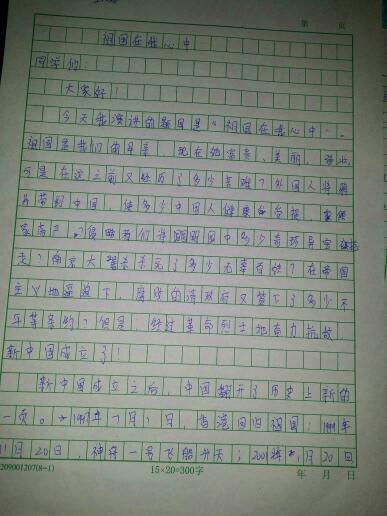 第 页
祖国在我心中
同学们:
大家好!
今天我演讲的题目是"祖国在我心中"。
祖国是我们的母亲,现在她富贵、美丽、
可是在这之前又经历了多少苦难?外国人将鸦
片带到中国,使多少中国人健康
家荡产。?侵略者们将圆明园中多少奇珍异宝
走?南京大屠杀杀死了多少无辜百姓?在帝国
主义地逼迫下,腐败的清政府又签下了多少不
平等条约?但是,经过革命烈士地奋力抗敌,
新中国成立了!
新中国成立之后,中国翻开了历史上新的
一页。1997年7月1日,香港回归祖国;1999年
11月20日,神舟一号飞船升天;2001年 月20日
209001207(8-1)
15×20=300字
年 月 日